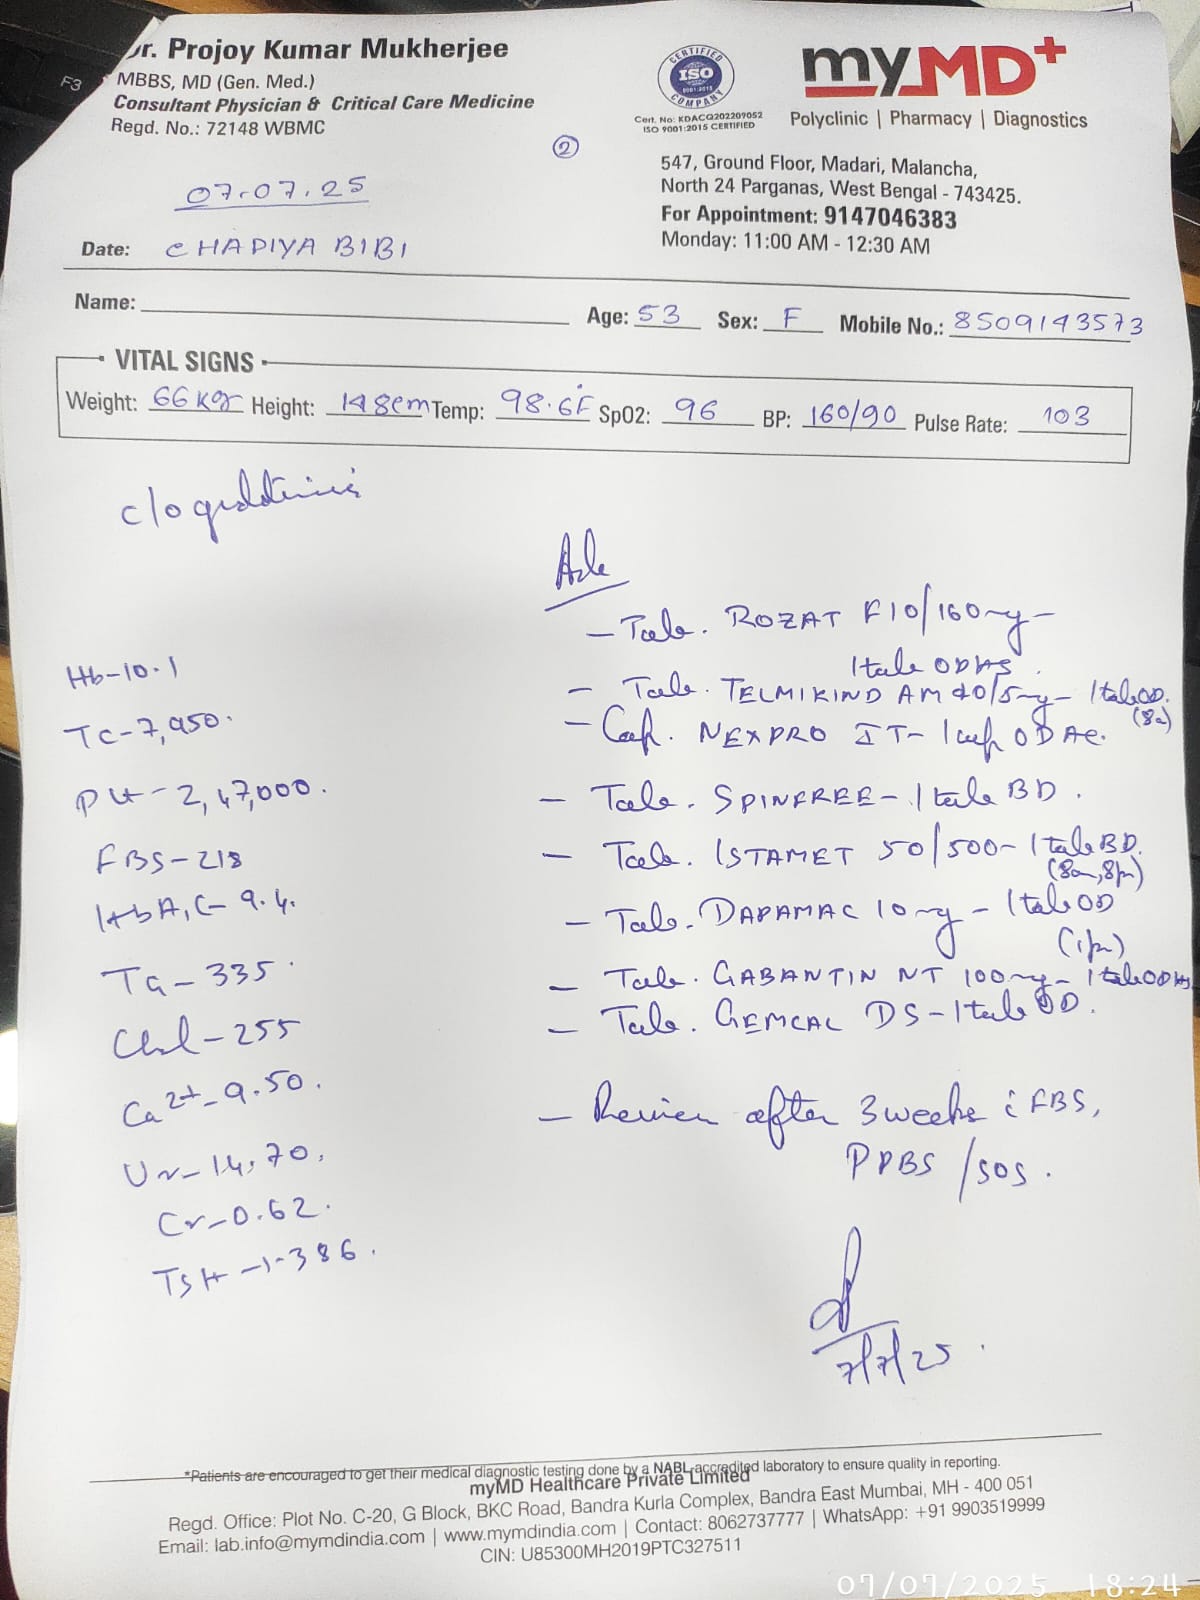 Dr. Projoy Kumar Mukherjee
MBBS, MD (Gen. Med.)
Consultant Physician & Critical Care Medicine
Regd. No.: 72148 WBMC
F3
CERTIFIED
ISO
9001:2015
COMPANY
Cert. No: KDACQ202209052
ISO 9001:2015 CERTIFIED
myMD+
Polyclinic | Pharmacy | Diagnostics
2
547, Ground Floor, Madari, Malancha,
North 24 Parganas, West Bengal - 743425.
For Appointment: 9147046383
Monday: 11:00 AM - 12:30 AM
07.07.25
Date: CHADIYA BIBI
Name: Age: 53 Sex: F Mobile No.: 8509143573
VITAL SIGNS
Weight: 66 kgr Height: 148cm Temp: 98.6°F SpO2: 96 BP: 160/90 Pulse Rate: 103
c/o
Adv
- Tab. ROZAT F10/160mg -
1 tab ODHS.
- Tab. TELMIKIND AM 40/5mg - 1 tab OD.
(8a)
- Cap. NEXPRO IT - 1 cap OD AC.
- Tab. SPINFREE - 1 tab BD.
- Tab. ISTAMET 50/500 - 1 tab BD.
(8am, 8pm)
- Tab. DAPAMAC 10mg - 1 tab OD
(1pm)
- Tab. GABANTIN NT 100mg - 1 tab ODHS
- Tab. GEMCAL DS - 1 tab OD.
- Review after 3 weeks c̄ FBS,
PPBS / SOS.
Hb - 10.1
Tc - 7,950.
Plt - 2,47,000.
FBS - 218
HbA1C - 9.4.
TG - 335.
Chol - 255
Ca2+ - 9.50.
Ur - 14.70.
Cr - 0.62.
TSH - 1.386.
7/7/25.
*Patients are encouraged to get their medical diagnostic testing done by a NABL accredited laboratory to ensure quality in reporting.
myMD Healthcare Private Limited
Regd. Office: Plot No. C-20, G Block, BKC Road, Bandra Kurla Complex, Bandra East Mumbai, MH - 400 051
Email: lab.info@mymdindia.com | www.mymdindia.com | Contact: 8062737777 | WhatsApp: +91 9903519999
CIN: U85300MH2019PTC327511
07/07/2025 18:24